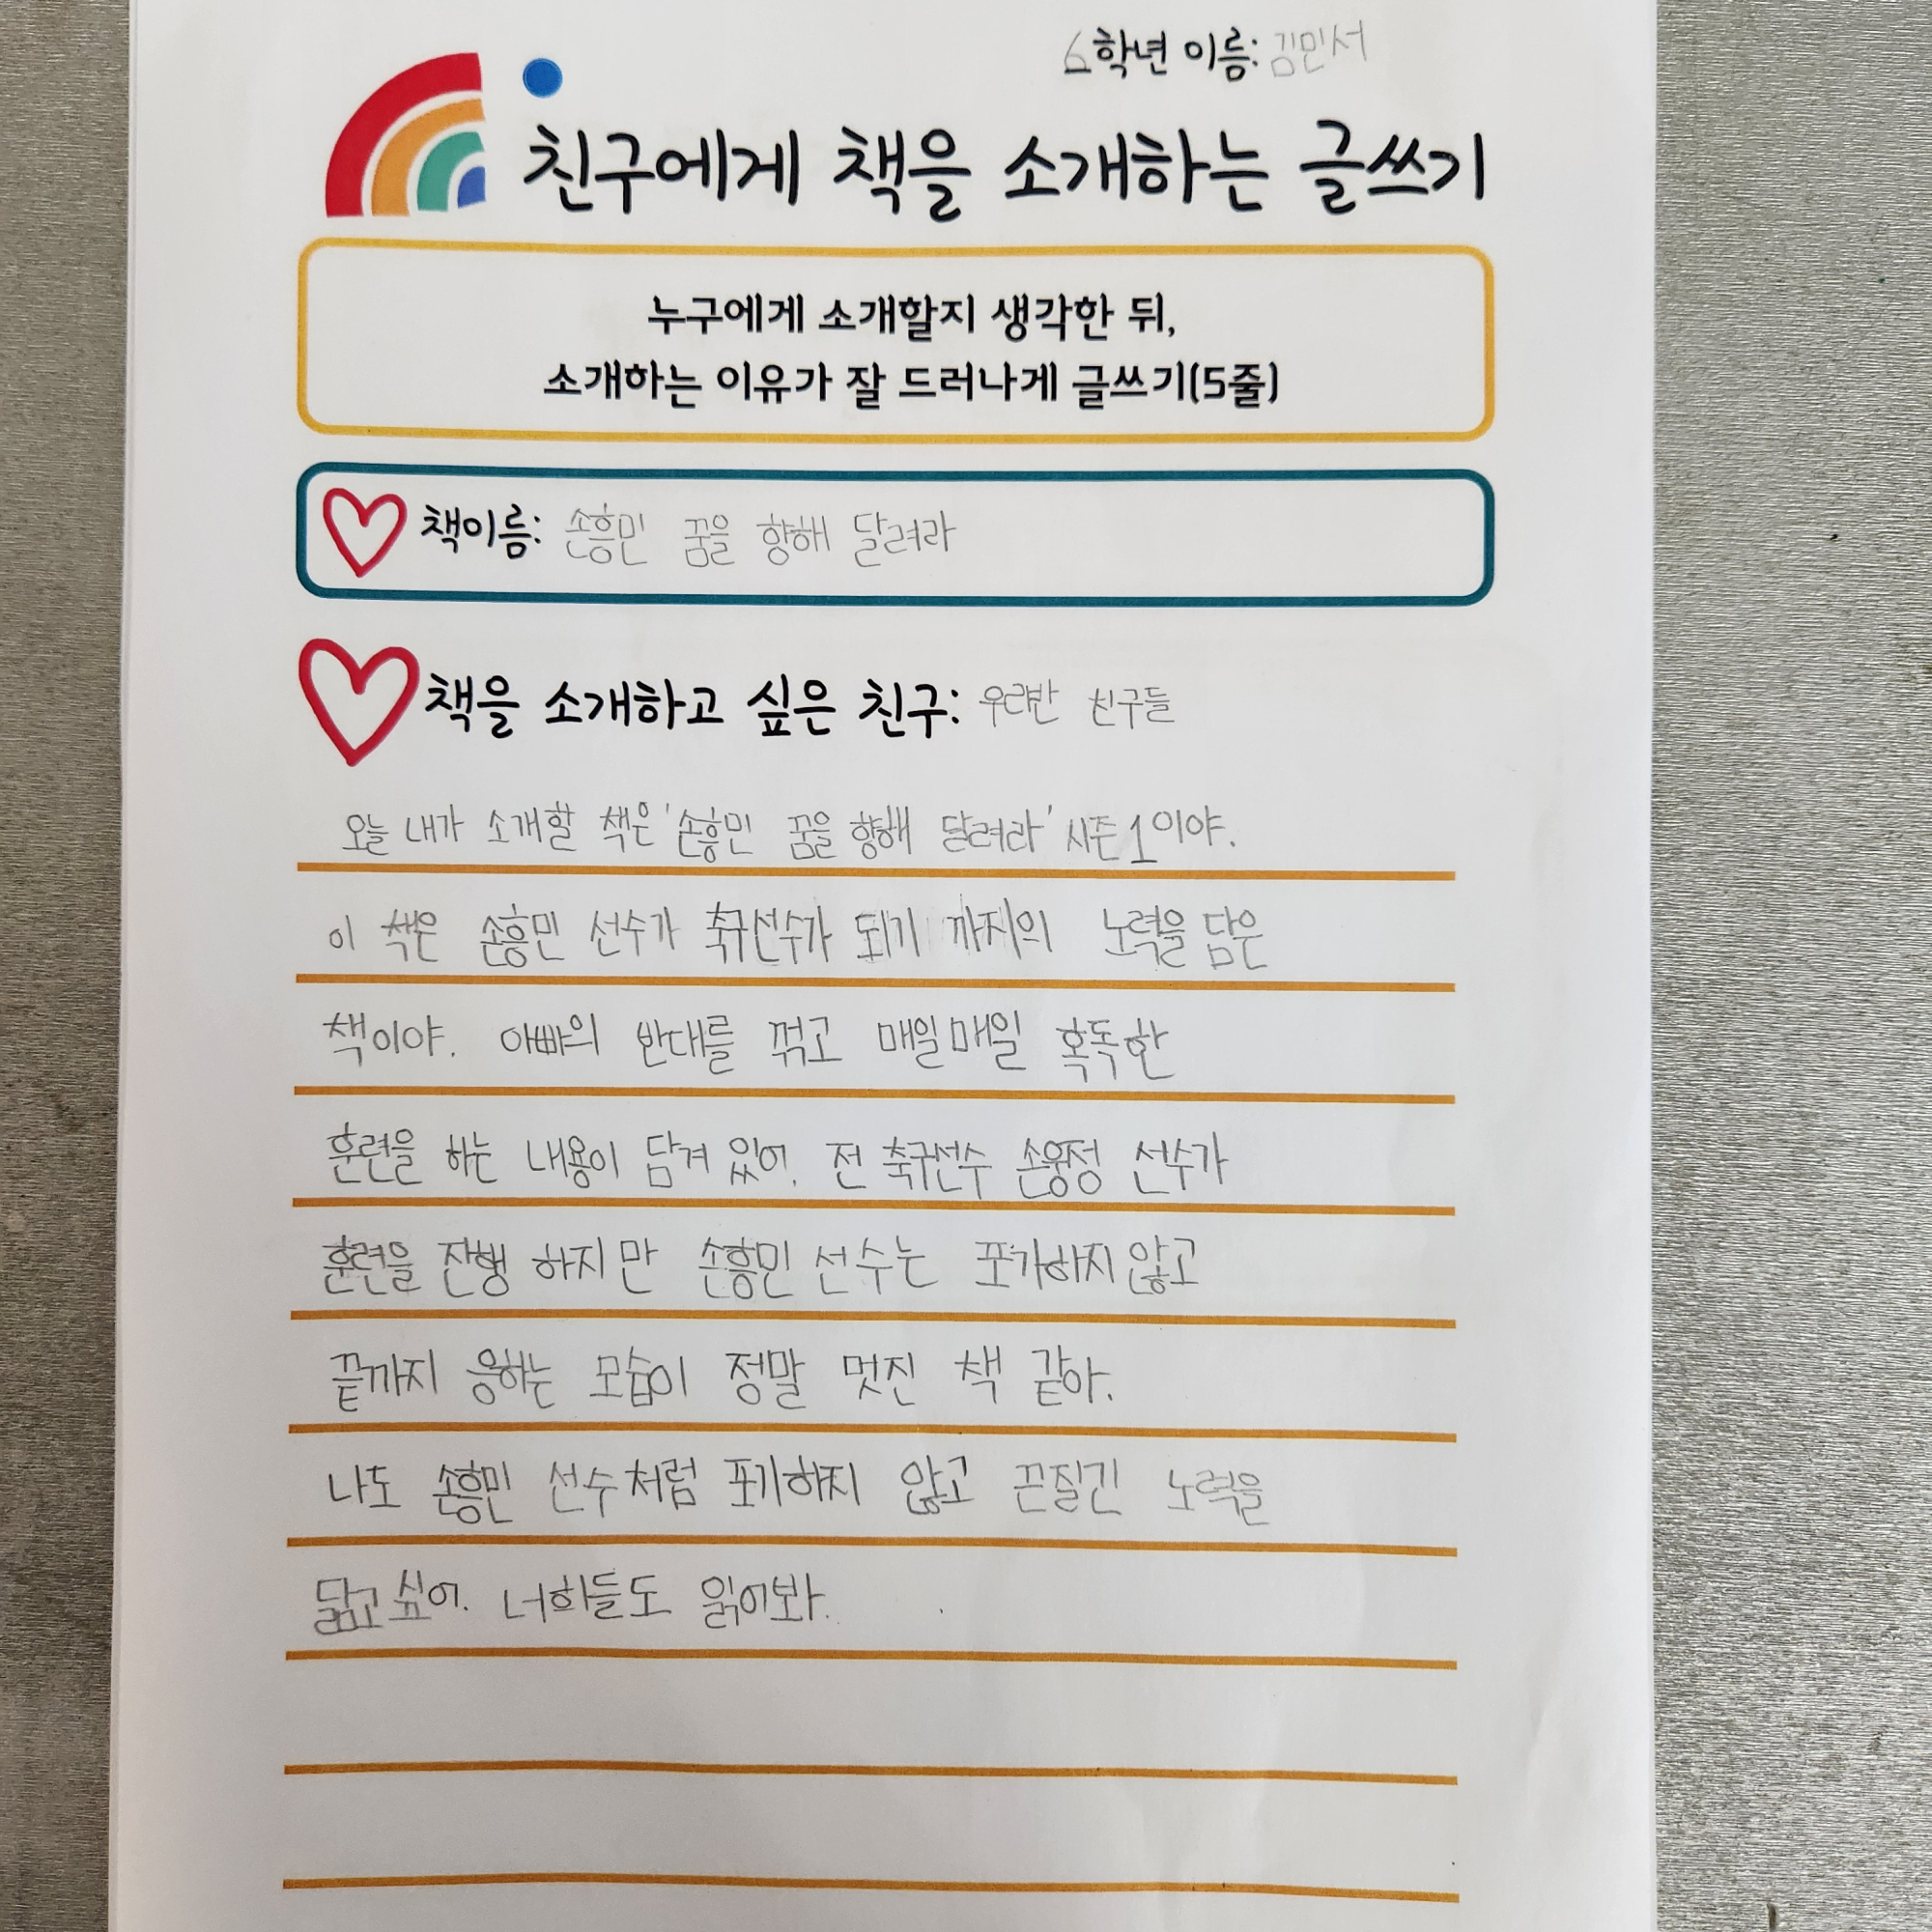 6학년 이름: 김민서
친구에게 책을 소개하는 글쓰기
누구에게 소개할지 생각한 뒤,
소개하는 이유가 잘 드러나게 글쓰기(5줄)
책이름: 손흥민 꿈을 향해 달려라
책을 소개하고 싶은 친구: 우리반 친구들
오늘 내가 소개할 책은 '손흥민 꿈을 향해 달려라' 시즌1이야.
이 책은 손흥민 선수가 축구선수가 되기 까지의 노력을 담은
책이야. 아빠의 반대를 꺾고 매일매일 혹독한
훈련을 하는 내용이 담겨 있어. 전 축구선수 손웅정 선수가
훈련을 진행 하지만 손흥민 선수는 포기하지 않고
끝까지 응하는 모습이 정말 멋진 책 같아.
나도 손흥민 선수처럼 포기하지 않고 끈질긴 노력을
닮고 싶어. 너희들도 읽어봐.